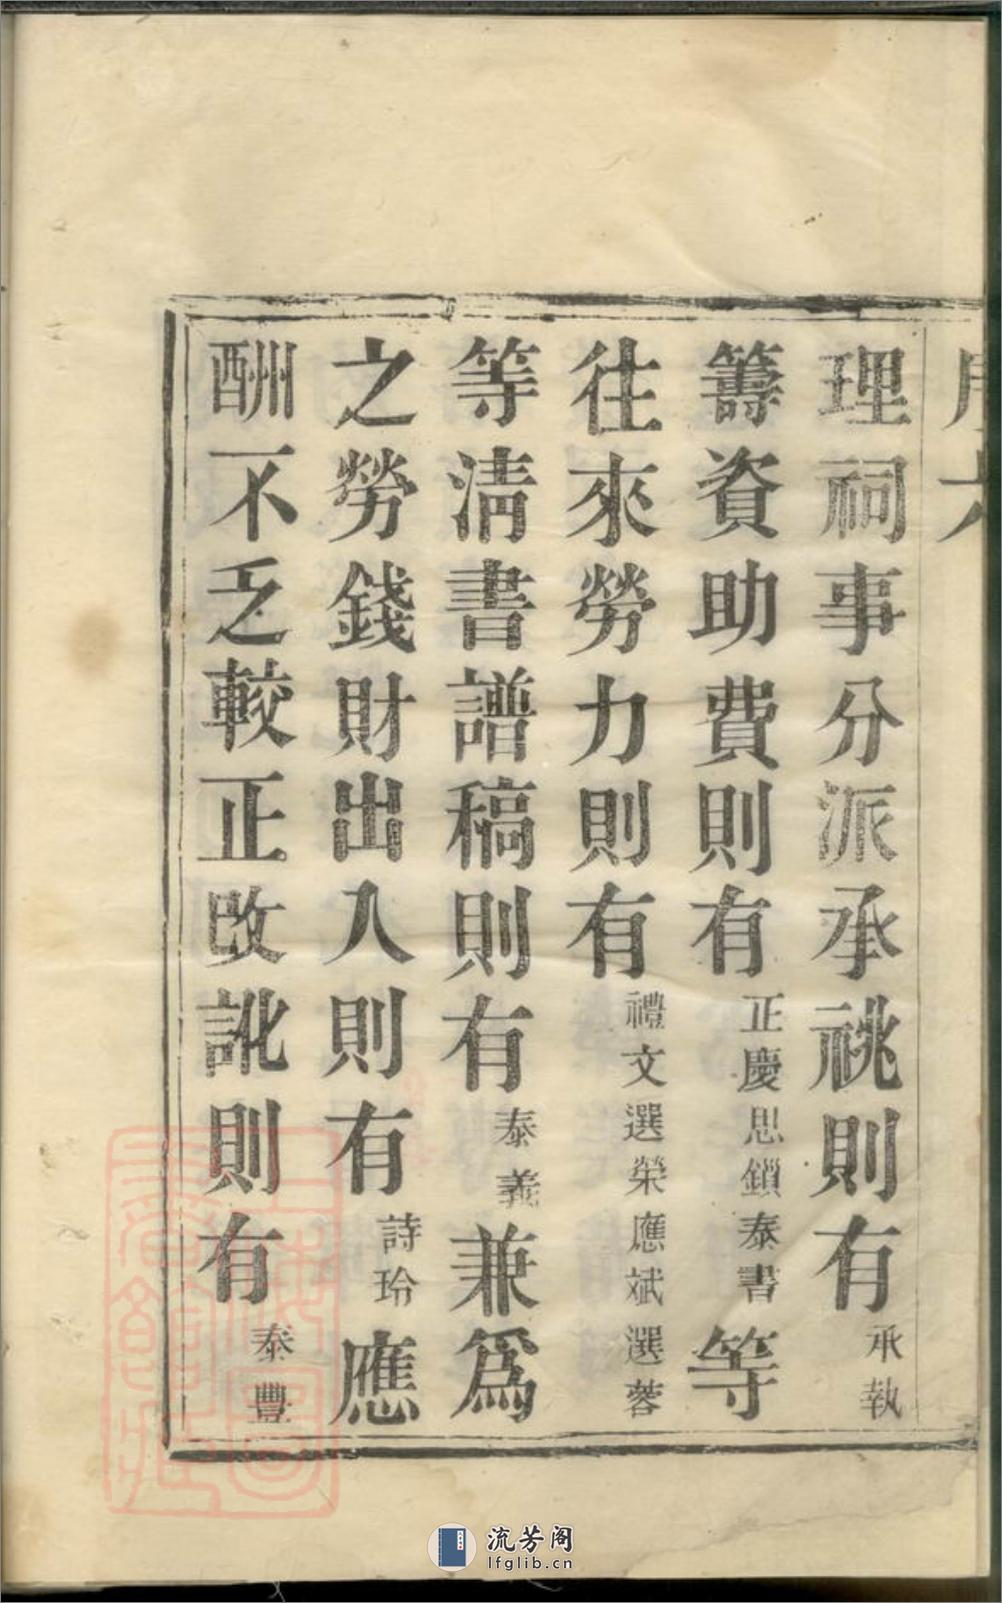 理祠事分派承祧則有承執
籌資助費則有正慶思鎖泰書等
往來勞力則有禮文選榮應斌選蓉
等清書譜稿則有泰義兼爲
之勞錢財出入則有詩玲應
酬不乏較正改訛則有泰豐
流芳阁
lfglib.cn